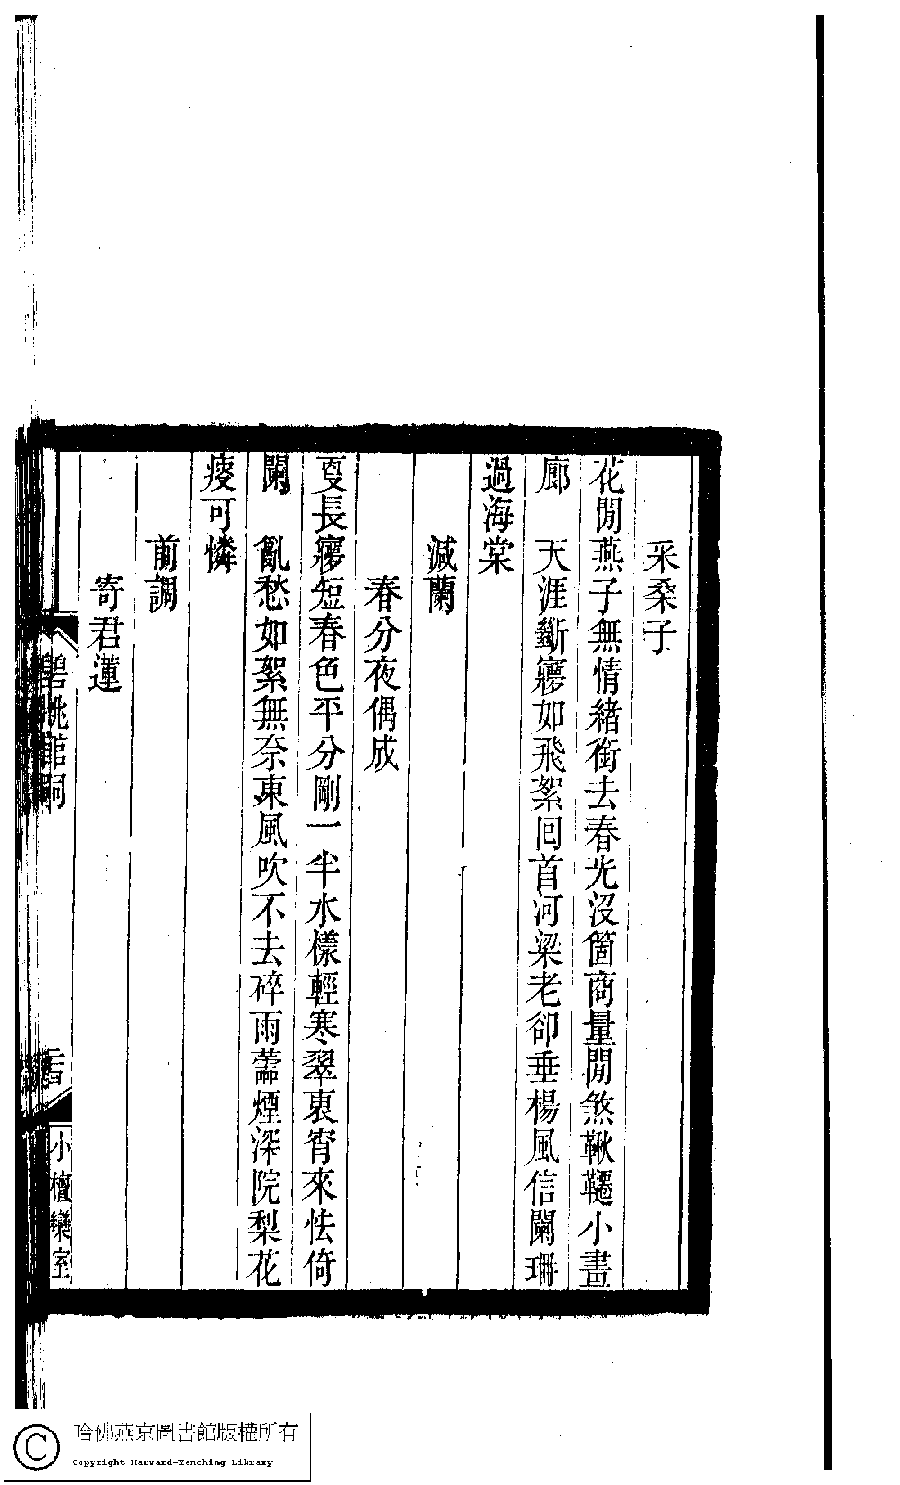 采桑子
花閒燕子無情緒銜去春光沒箇商量閒煞鞦韆小畫
廊　天涯斷寢如飛絮回首河梁老卻垂楊風信闌珊
過海棠
減蘭
春分夜偶成
夏長寢短春色平分剛一半水樣輕寒翠袖宵來怯倚
闌　亂愁如絮無奈東風吹不去碎雨蘦煙深院梨花
痩可憐
前調
寄君蓮
碧桃館詞
小檀欒室
哈佛燕京圖書館版權所有
Copyright Harvard-Yenching Library